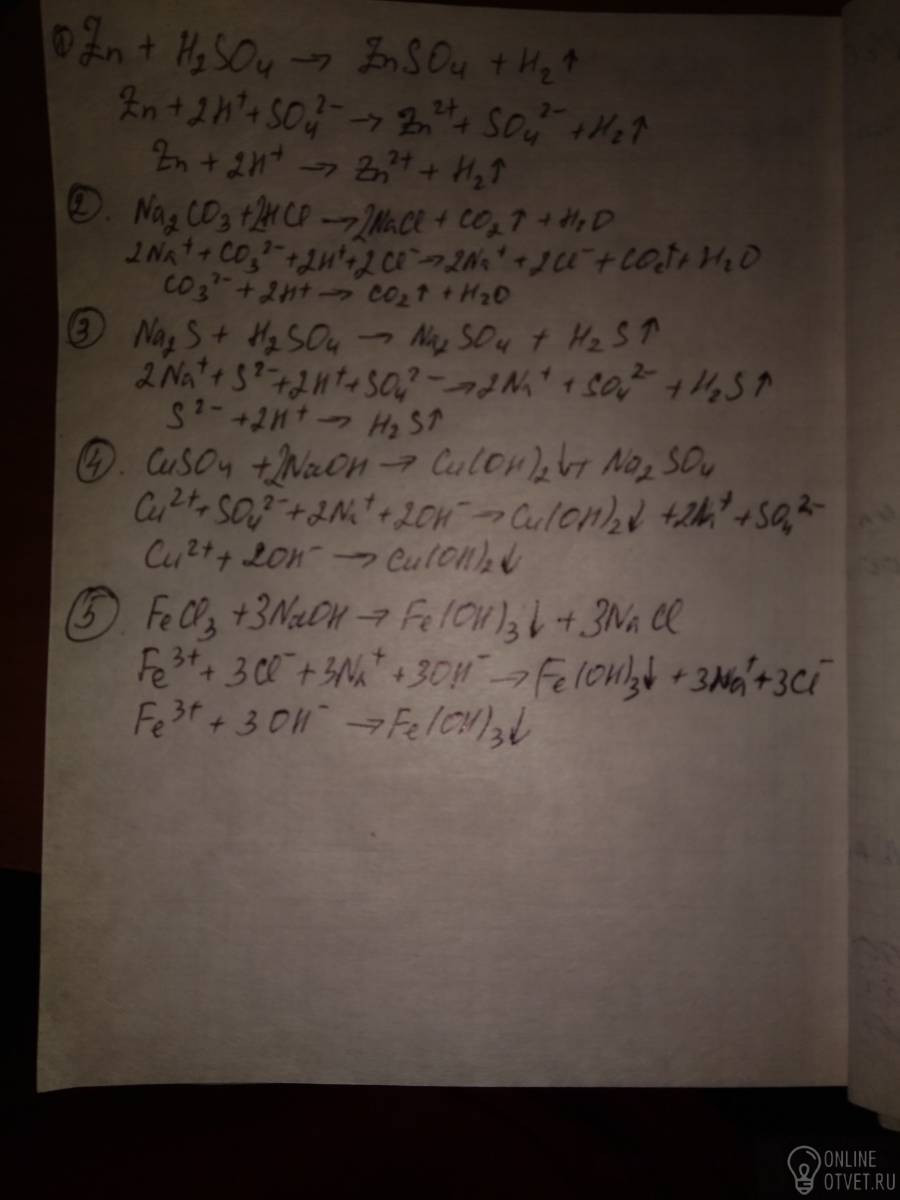 ① Zn + H₂SO₄ → ZnSO₄ + H₂↑
Zn + 2H⁺ + SO₄²⁻ → Zn²⁺ + SO₄²⁻ + H₂↑
Zn + 2H⁺ → Zn²⁺ + H₂↑
②. Na₂CO₃ + 2HCl → 2NaCl + CO₂↑ + H₂O
2Na⁺ + CO₃²⁻ + 2H⁺ + 2Cl⁻ → 2Na⁺ + 2Cl⁻ + CO₂↑ + H₂O
CO₃²⁻ + 2H⁺ → CO₂↑ + H₂O
③ Na₂S + H₂SO₄ → Na₂SO₄ + H₂S↑
2Na⁺ + S²⁻ + 2H⁺ + SO₄²⁻ → 2Na⁺ + SO₄²⁻ + H₂S↑
S²⁻ + 2H⁺ → H₂S↑
④. CuSO₄ + 2NaOH → Cu(OH)₂↓ + Na₂SO₄
Cu²⁺ + SO₄²⁻ + 2Na⁺ + 2OH⁻ → Cu(OH)₂↓ + 2Na⁺ + SO₄²⁻
Cu²⁺ + 2OH⁻ → Cu(OH)₂↓
⑤ FeCl₃ + 3NaOH → Fe(OH)₃↓ + 3NaCl
Fe³⁺ + 3Cl⁻ + 3Na⁺ + 3OH⁻ → Fe(OH)₃↓ + 3Na⁺ + 3Cl⁻
Fe³⁺ + 3OH⁻ → Fe(OH)₃↓
ONLINE
OTVET.RU